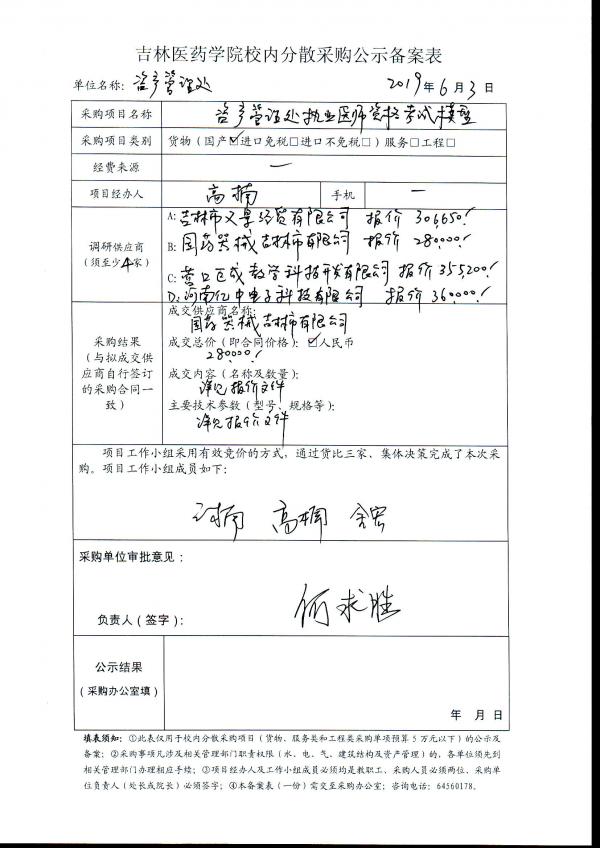 吉林医药学院校内分散采购公示备案表
单位名称：资产管理处 2019年6月3日
采购项目名称 资产管理处执业医师资格考试模型
采购项目类别 货物（国产☑进口免税□进口不免税□）服务□工程□
经费来源 一
项目经办人 高楠 手机 一
调研供应商
（须至少4家）
A:吉林市义景经贸有限公司 报价 306,650!
B:国药器械吉林市有限公司 报价 280,000!
C:营口巨成教学科技开发有限公司 报价 355,200!
D:河南亿中电子科技有限公司 报价 360,000!
采购结果
（与拟成交供
应商自行签订
的采购合同一
致）
成交供应商名称：
国药器械吉林市有限公司
成交总价（即合同价格）：☑人民币
280000!
成交内容（名称及数量）：
详见报价文件
主要技术参数（型号、规格等）：
详见报价文件
项目工作小组采用有效竞价的方式，通过货比三家、集体决策完成了本次采
购。项目工作小组成员如下：
高楠
采购单位审批意见：
负责人（签字）： 何求胜
公示结果
（采购办公室填）
年 月 日
填表须知：①此表仅用于校内分散采购项目（货物、服务类和工程类采购单项预算5万元以下）的公示及
备案；②采购事项凡涉及相关管理部门职责权限（水、电、气、建筑结构及资产管理）的，各单位须先到
相关管理部门办理相应手续；③项目经办人及工作小组成员必须均是教职工、采购人员必须两位、采购单
位负责人（处长或院长）必须签字；④本备案表（一份）需交至采购办公室；咨询电话：64560178。